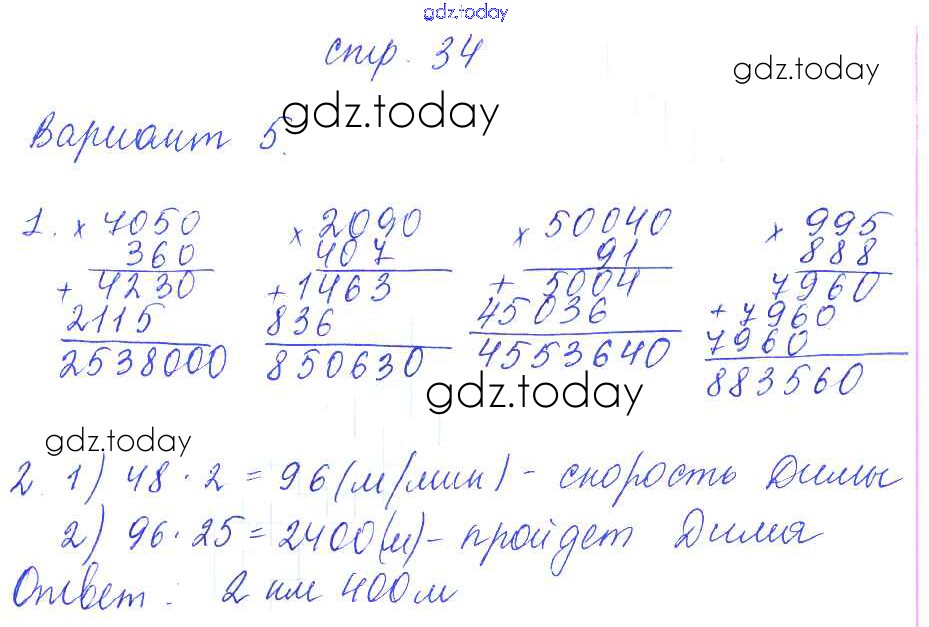 gdz.today
стр. 34
gdz.today
gdz.today
Вариант 5.
1. × 7050 × 2090 × 50040 × 995
360 407 91 888
+ 4230 + 1463 + 5004 7960
2115 836 45036 + 7960
2538000 850630 4553640 7960
883560
gdz.today
gdz.today
2. 1) 48 · 2 = 96 (м/мин) - скорость Димы
2) 96 · 25 = 2400 (м) - пройдет Дима
Ответ : 2 км 400 м